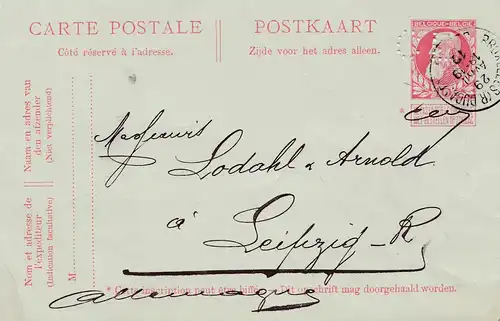 CARTE POSTALE POSTKAART
Côté réservé à l'adresse. Zijde voor het adres alleen.
BELGIQUE-BELGIË
Naam en adres van
den afzender
(Niet verplichtend)
Nom et adresse de
l'expéditeur
(Indication facultative)
Messieurs
Lodahl & Arnold
à
Leipzig-R
M.
* Cette inscription peut être biffée. — Dit opschrift mag doorgehaald worden.
Allemagne